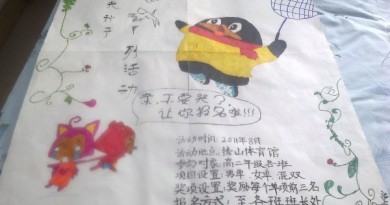 系列活动
亲,不要哭?
让你报名啦!!!
活动时间:2011年8月
活动地点:佛山体育馆
参加对象:高二年级各班
项目设置:男单 女单 混双
奖项设置:奖励每个单项前三名
报名方式:至各班班长处